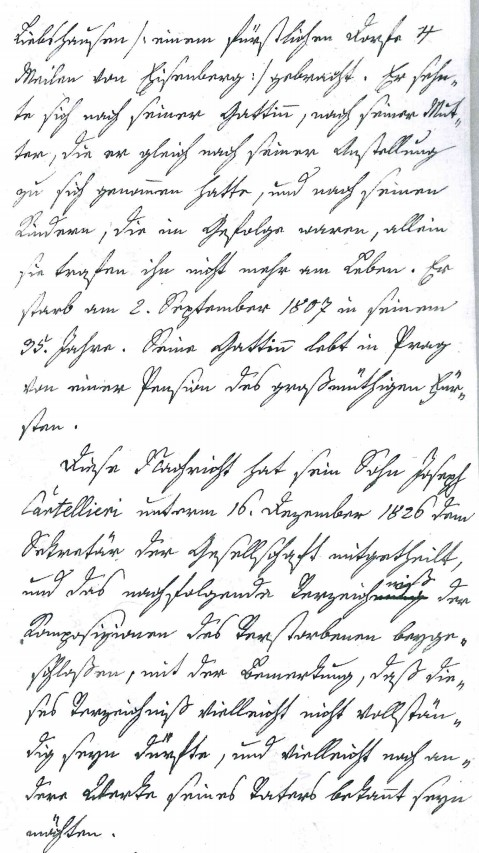 Liebshausen /: einem fürstlichen Dorfe 4
Meilen von Eisenberg :/ gebracht. Er sehn-
te sich nach seiner Gattinn, nach seiner Mut-
ter, die er gleich nach seiner Anstellung
zu sich genommen hatte, und nach seinen
Kindern, die im Gefolge waren, allein
sie trafen ihn nicht mehr am Leben. Er
starb am 2. September 1807 in seinem
35. Jahre. Seine Gattinn lebt in Prag
von einer Pension des großmüthigen Für-
sten.
Diese Nachricht hat sein Sohn Joseph
Cartellieri unterm 16. Dezember 1826 dem
Sekretär der Gesellschaft mitgetheilt,
und das nachfolgende Verzeichniß der
Komposizionen des Verstorbenen beyge-
schloßen, mit der Bemerkung, daß die-
ses Verzeichniß vielleicht nicht vollstän-
dig seyn dürfte, und vielleicht noch an-
dere Werke seines Vaters bekannt seyn
möchten.